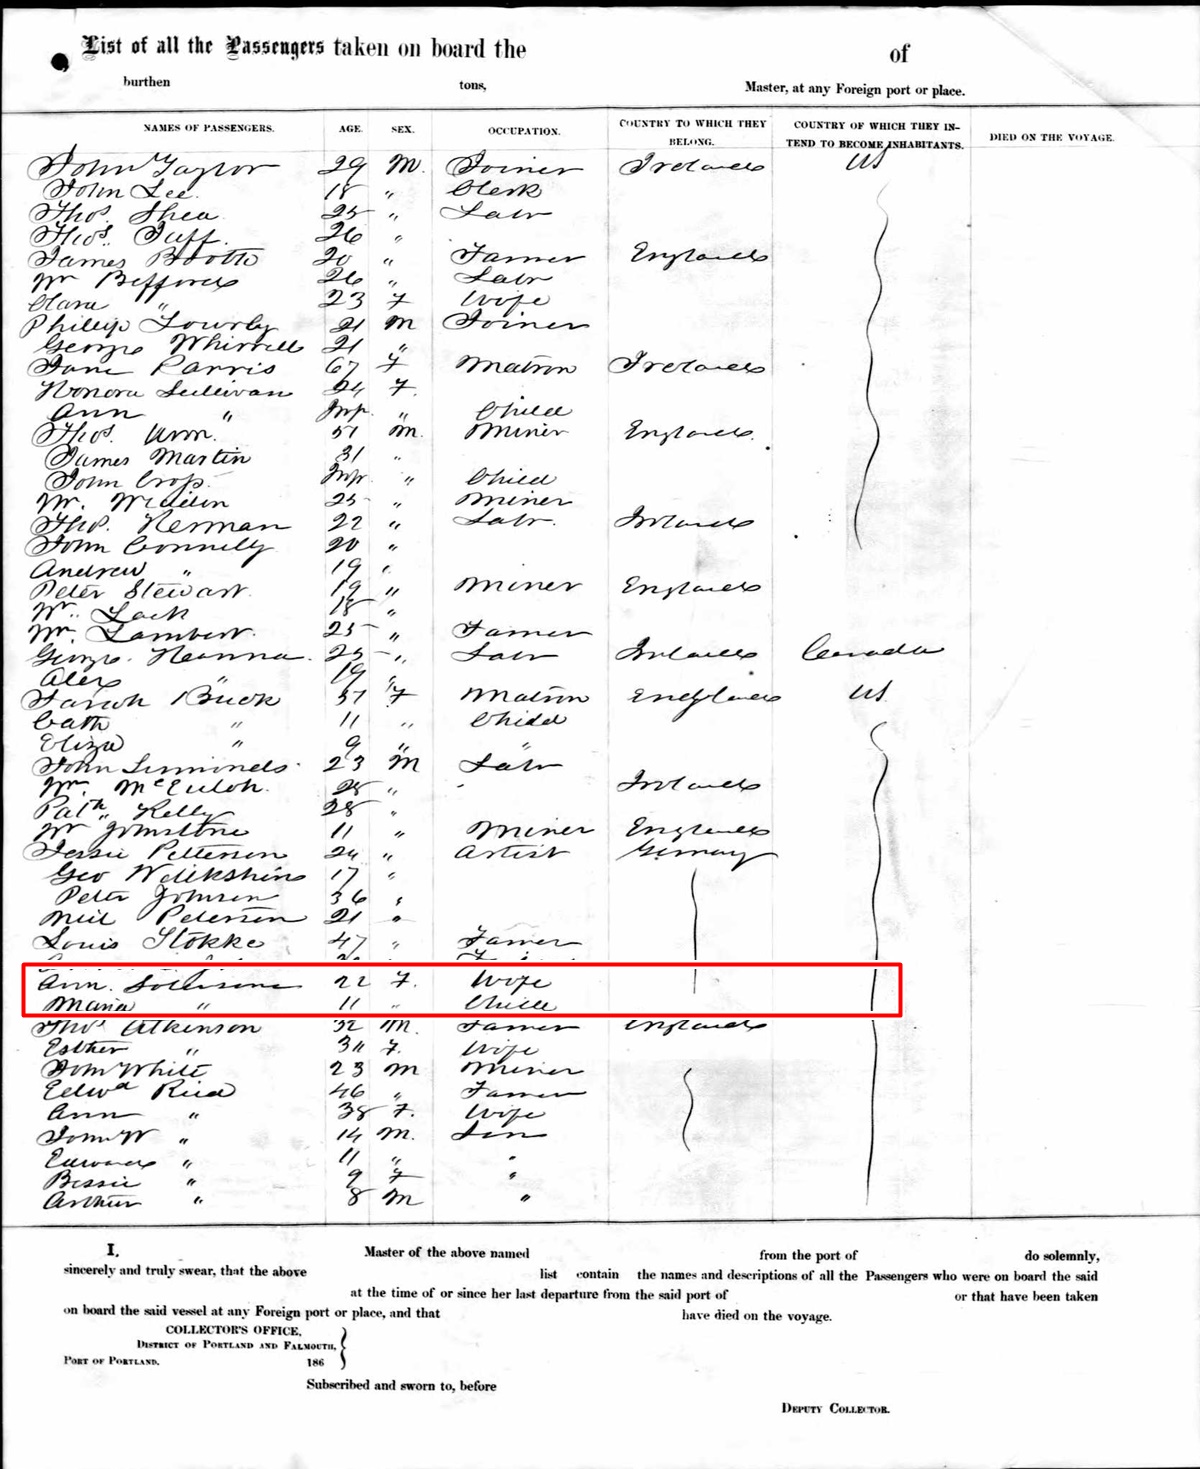 List of all the Passengers taken on board the of
burthen tons, Master, at any Foreign port or place.
NAMES OF PASSENGERS. AGE. SEX. OCCUPATION. COUNTRY TO WHICH THEY BELONG. COUNTRY OF WHICH THEY INTEND TO BECOME INHABITANTS. DIED ON THE VOYAGE.
John Taylor 29 M. Joiner Ireland US
John Lee 18 " Clerk
Thos. Shea 25 " Labr
Thos. Tuff. 26 "
James Booth 20 " Farmer England
Wm 26 " Labr
Clara " 23 F Wife
Phillip Lowrly 21 M Joiner
George Whirrell 21 "
Jane Parris 67 F Matron Ireland
Honora Sullivan 24 F.
Ann " Inf. " Child
Thos. 51 M. Miner England.
James Martin 31 "
John Inf. " Child
Wm. 25 " Miner
Thos. Kerman 22 " Labr. Ireland
John Connelly 20 "
Andrew " 19 "
Peter Stewart 19 " Miner England
Wm. Lack 18 "
Wm. Lambert. 25 " Farmer
George. Hanna. 25 " Labr Ireland Canada
Alex " 19 "
Sarah Buck 37 F Matron England US
Cath " 11 " Child
Eliza " 9 " "
John Simonds. 23 M Labr
Wm. 28 " Ireland
Path. Kelly 28 "
Wm Johnstone 11 " Miner England
Jessie Petterson 24 " Artist Germany
Geo 17 "
Peter Johnson 36 "
Neil Peterson 21 "
Louis Stokke 47 " Farmer
Ann. 22 F. Wife
Maria " 11 " Child
Thos Atkinson 32 M. Farmer England
Esther " 34 F. Wife
John White 23 M Miner
Edwd Reid 46 " Farmer
Ann " 38 F. Wife
John W " 14 M. Son
Edward " 11 " "
Bessie " 9 F "
Arthur " 8 M "
I, Master of the above named from the port of do solemnly,
sincerely and truly swear, that the above list contain the names and descriptions of all the Passengers who were on board the said
at the time of or since her last departure from the said port of or that have been taken
on board the said vessel at any Foreign port or place, and that have died on the voyage.
COLLECTOR'S OFFICE,
DISTRICT OF PORTLAND AND FALMOUTH,
PORT OF PORTLAND. 186
Subscribed and sworn to, before
DEPUTY COLLECTOR.